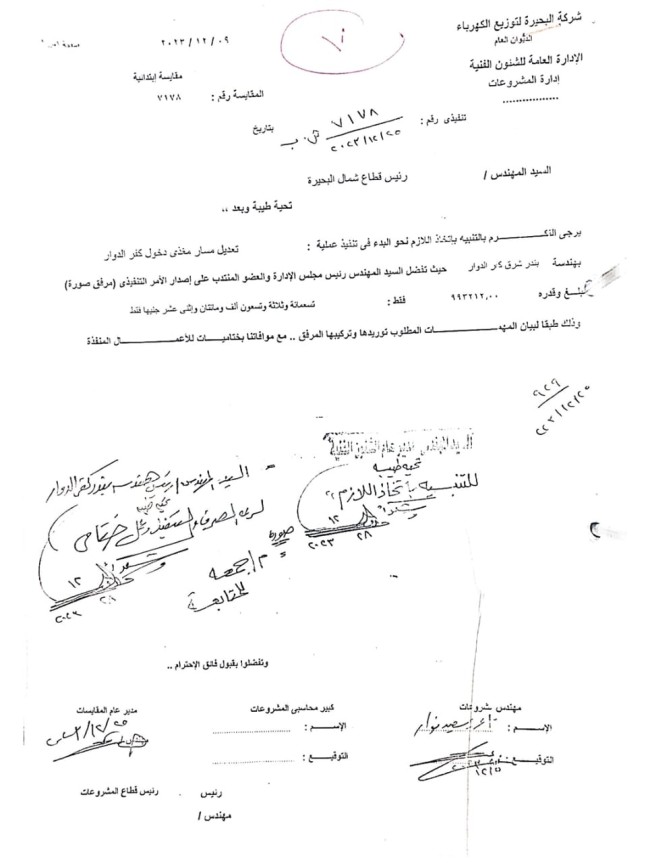 شركة البحيرة لتوزيع الكهرباء
الديوان العام
الإدارة العامة للشئون الفنية
إدارة المشروعات
................
٢٠٢٣/١٢/٠٩
مقايسة إبتدائية
المقايسة رقم : ٧١٧٨
تنفيذى رقم : ٧١٧٨
بتاريخ ٢٠٢٣/١٢/٢٥
السيد المهندس / رئيس قطاع شمال البحيرة
تحية طيبة وبعد ،،
يرجى التكـــــرم بالتنبيه بإتخاذ اللازم نحو البدء فى تنفيذ عملية : تعديل مسار مغذى دخول كفر الدوار
بهندسة بندر شرق كفر الدوار حيث تفضل السيد المهندس رئيس مجلس الإدارة والعضو المنتدب على إصدار الأمر التنفيذى (مرفق صورة)
بمبلغ وقدره ٩٩٣٢١٢,٠٠ فقط : تسعمائة وثلاثة وتسعون ألف ومائتان وإثنى عشر جنيها فقط
وذلك طبقا لبيان المهمـــات المطلوب توريدها وتركيبها المرفق .. مع موافاتنا بختاميات للأعمـــــال المنفذة
٩٢٩
السيد المهندس / مدير عام الشئون الفنية
تحية طيبة
للتنبيه باتخاذ اللازم
٢٨ ١٢ ٢٠٢٣
السيد المهندس / رئيس هندسة بندر كفر الدوار
تحية طيبة
م / جمعه
للمتابعة
وتفضلوا بقبول فائق الإحترام ..
مهندس مشروعات
الإســـم :
التوقيـــع :
كبير محاسبى المشروعات
الإســـم : ......................
التوقيـــع : ......................
مدير عام المقايسات
رئيس
مهندس /
رئيس قطاع المشروعات